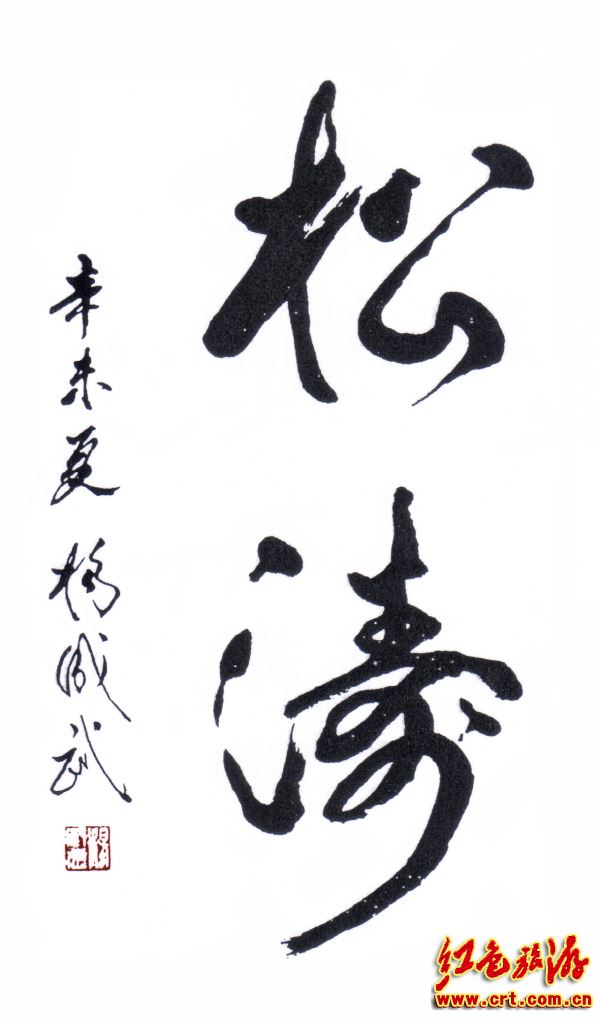 松涛
辛未夏 杨成武
红色旅游
www.crt.com.cn